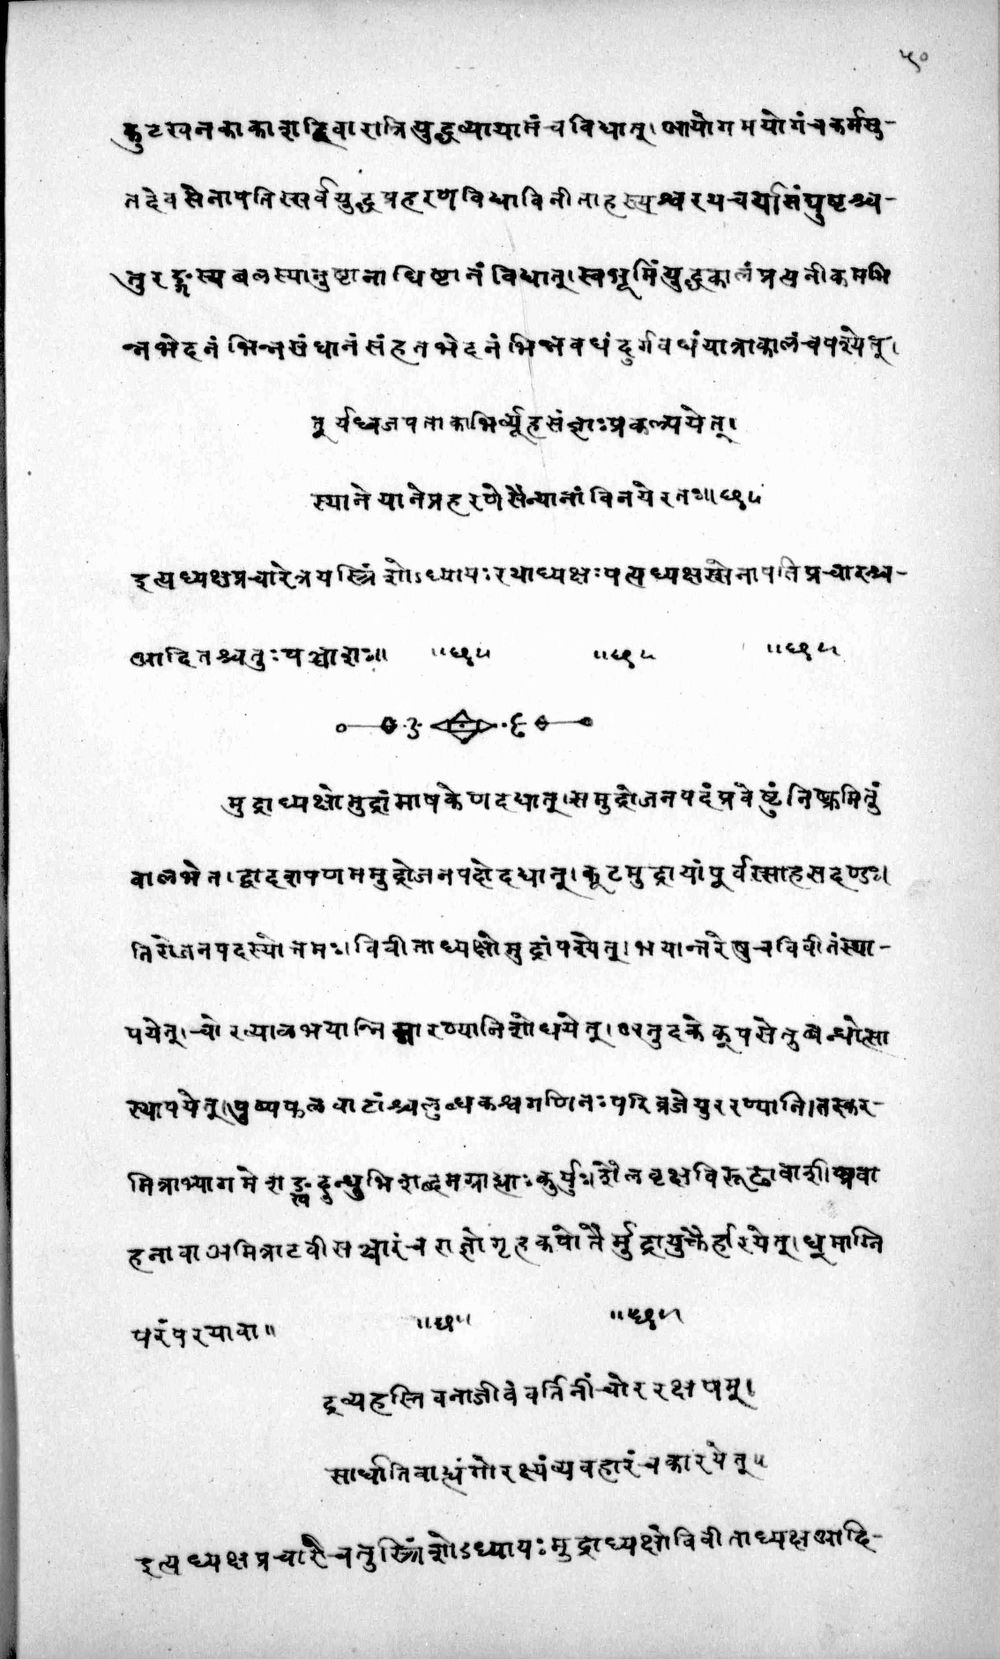 ५०
कुटखनकाकाशदिवारात्रियुद्धव्यायामं च विद्यात्। आयोगमयोगं च कर्मसु-
तदेव सेनापतिस्सर्वयुद्धप्रहरणविद्याविनीताहस्त्यश्वरथचर्यासंघुष्टश्च-
तुरङ्गस्य बलस्यानुष्टानाधिष्टानं विद्यात्। स्वभूमिं युद्धकालं प्रत्यनीकमभि
न्नभेदनं भिन्नसंधानं संहतभेदनं भिन्नवधं दुर्गवधं यात्राकालं च पश्येत्।
तूर्यध्वजपताकाभिर्व्यूहसंज्ञाः प्रकल्पयेत्।
स्थाने याने प्रहरणे सैन्यानां विनये रतः॥
इत्यध्यक्षप्रचारे त्रयस्त्रिंशोऽध्यायः रथाध्यक्षः पत्यध्यक्षस्सेनापतिप्रचारश्च-
आदितश्चतुःपञ्चाशः॥
मुद्राध्यक्षो मुद्रां माषकेण दद्यात्। समुद्रो जनपदं प्रवेष्टुं निष्क्रमितुं
वा लभेत। द्वादशपणममुद्रो जनपदो दद्यात्। कूटमुद्रायां पूर्वस्साहसदण्डः।
तिरोजनपदस्योत्तमः। विवीताध्यक्षो मुद्रां पश्येत्। भयान्तरेषु च विवीतं स्था-
पयेत्। चोरव्यालभयान्निम्नारण्यानि शोधयेत्। अनुदके कूपसेतुबन्धोत्सा
स्थापयेत्। पुष्पफलवाटांश्च लुब्धकश्वगणिनः परिव्रजेयुररण्यानि। तस्कर-
मित्राभ्यागमे शङ्खदुन्धुभिशब्दमग्राह्याः कुर्युः। शैलवृक्षविरूढा वा शीघ्रवा
हना वा अमित्राटवीसञ्चारं च राज्ञो गृहकपोतैर्मुद्रायुक्तैर्हारयेत्। धूमाग्नि
परंपरया वा॥
द्रव्यहस्तिवनाजीवं वर्तिनीं चोररक्षणम्।
सार्थातिवाह्यं गोरक्ष्यं व्यवहारं च कारयेत्॥
इत्यध्यक्षप्रचारे चतुस्त्रिंशोऽध्यायः मुद्राध्यक्षो विवीताध्यक्ष आदि-